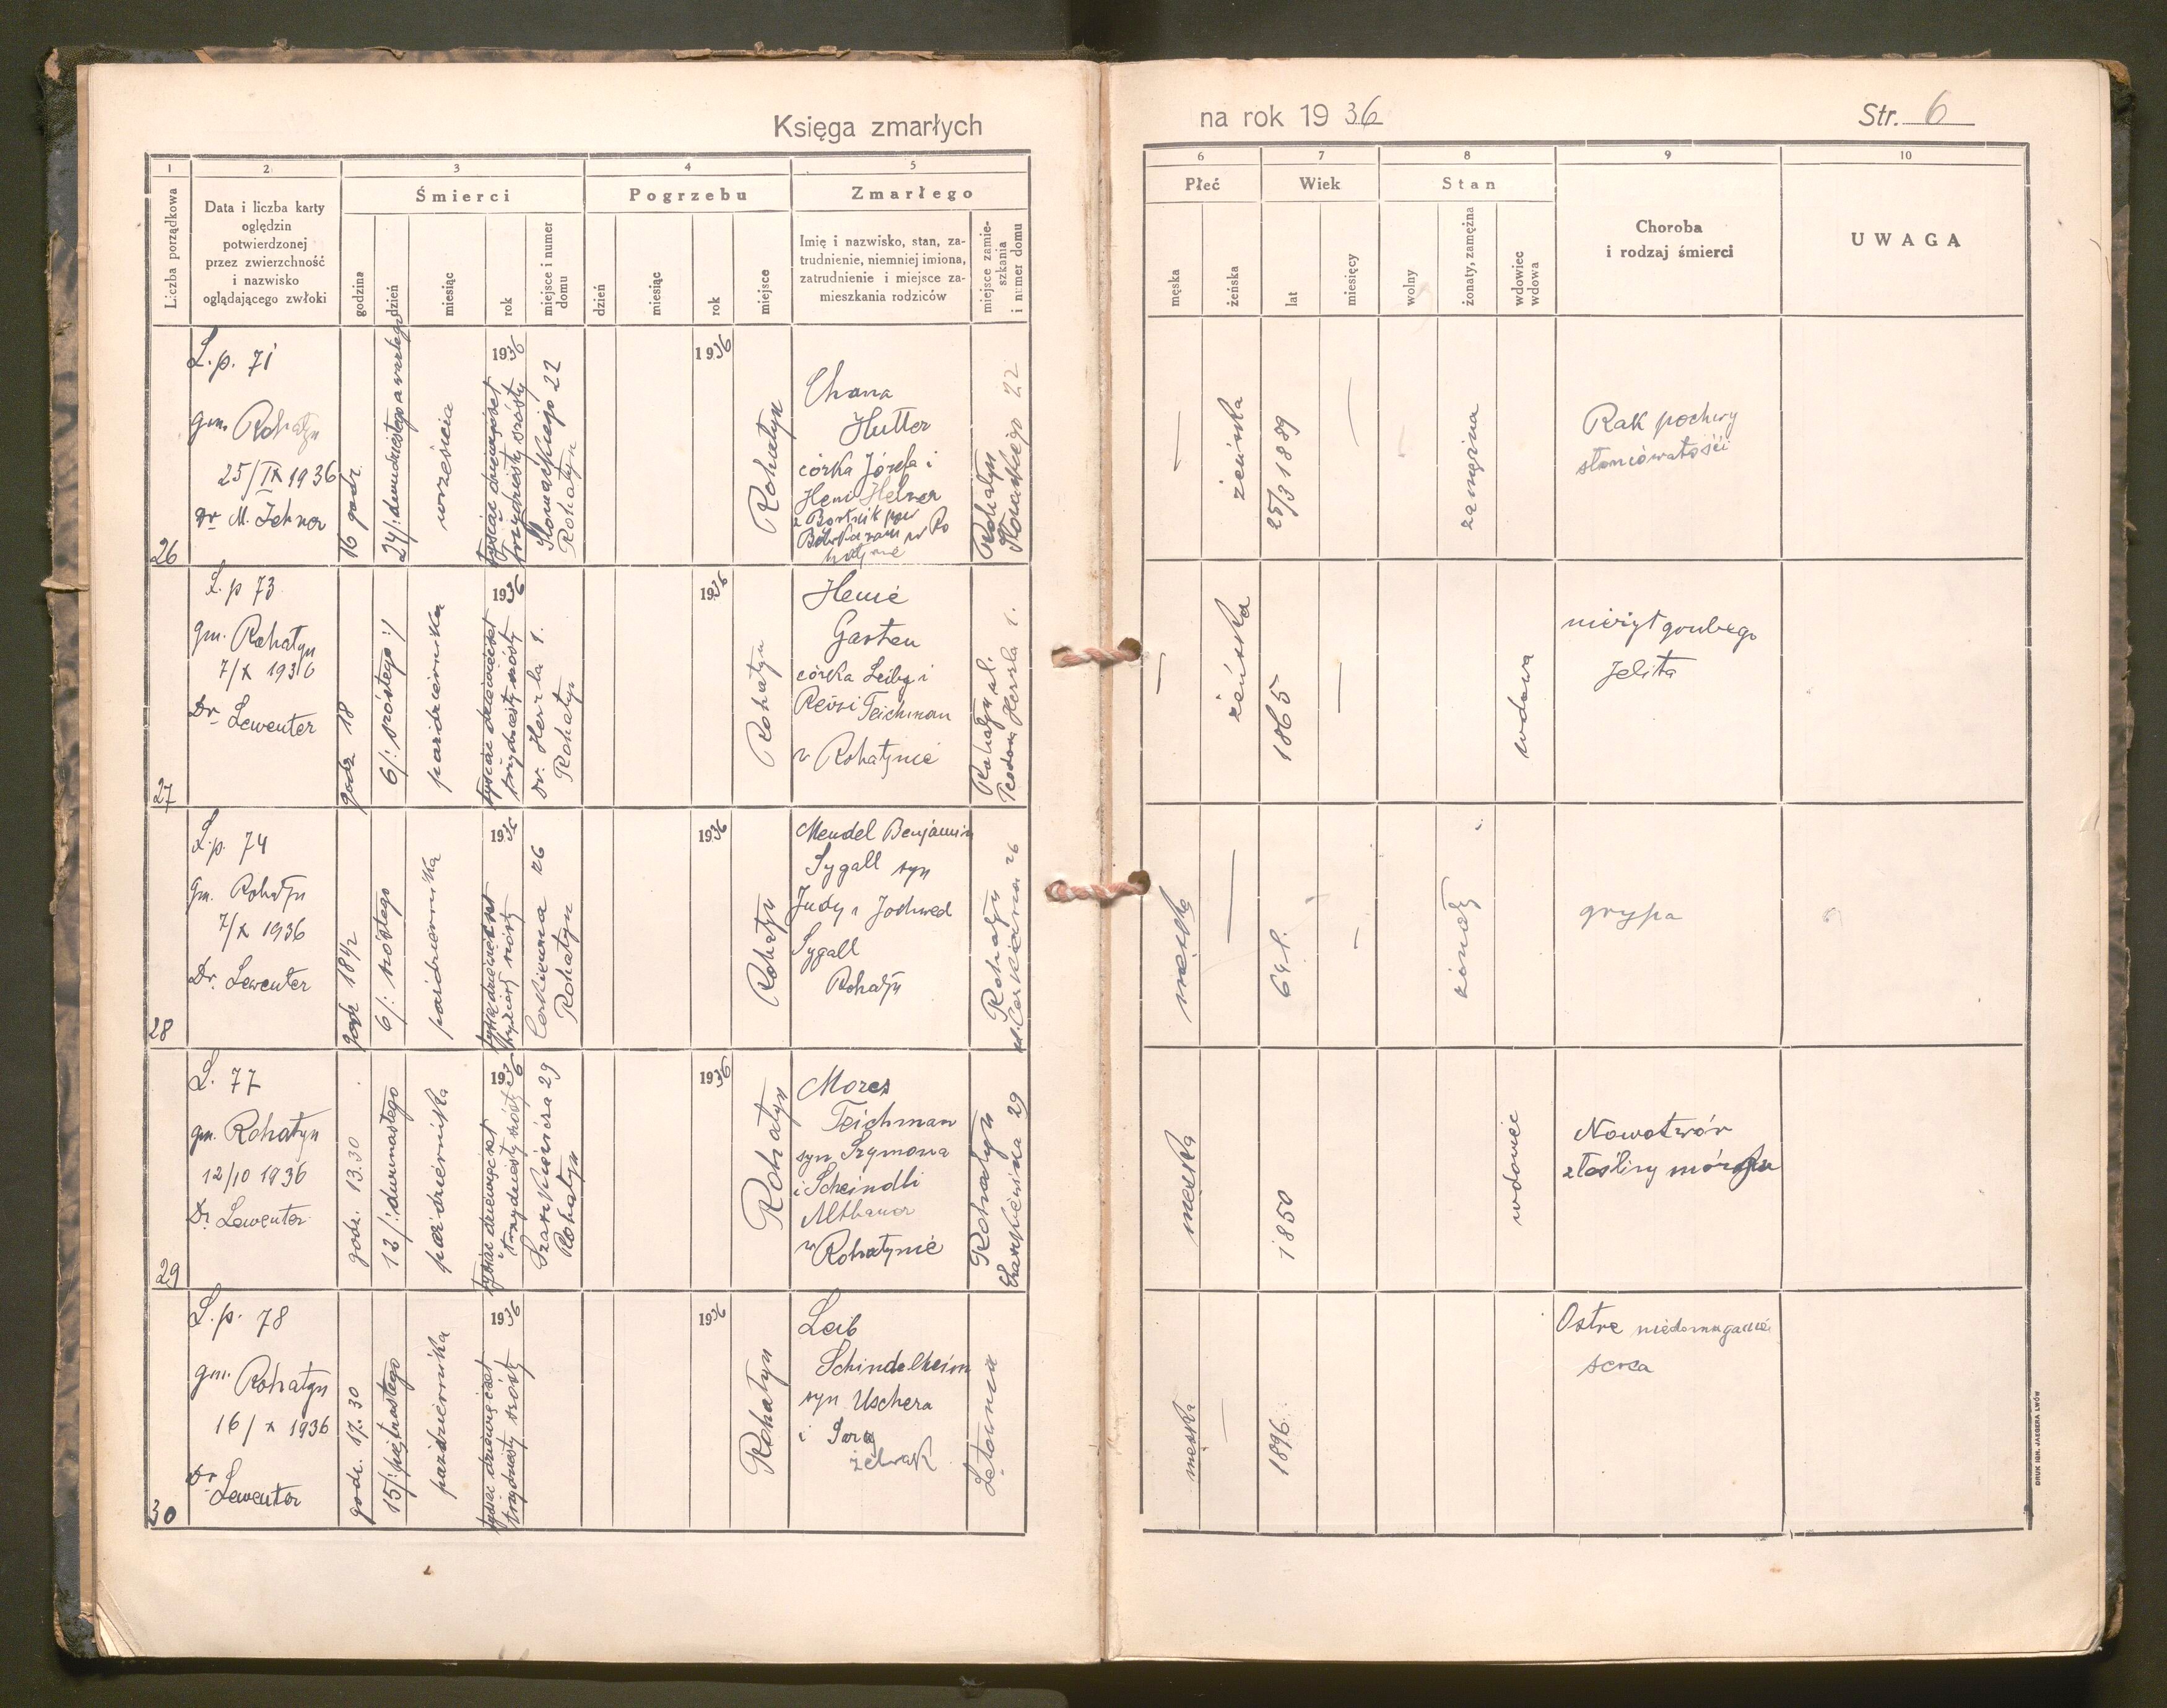 Księga zmarłych
na rok 1936
Str. 6
1
2
3
4
5
6
7
8
9
10
Liczba porządkowa
Data i liczba karty
oględzin
potwierdzonej
przez zwierzchność
i nazwisko
oglądającego zwłoki
Śmierci
godzina
dzień
miesiąc
rok
miejsce i numer
domu
Pogrzebu
dzień
miesiąc
rok
miejsce
Zmarłego
Imię i nazwisko, stan, za-
trudnienie, niemniej imiona,
zatrudnienie i miejsce za-
mieszkania rodziców
miejsce zamie-
szkania
i numer domu
Płeć
męska
żeńska
Wiek
lat
miesięcy
Stan
wolny
żonaty, zamężna
wdowiec
wdowa
Choroba
i rodzaj śmierci
UWAGA
26
L. p. 71
gm. Rohatyn
25/IX 1936
Dr M.
16 godz.
24/:
września
1936
tysiąc dziewięćset
trzydziesty szósty
Słowackiego 22
Rohatyn
1936
Rohatyn
Chana
Hutter
córka Józefa i
Heni
w Ro
hatynie
Rohatyn
Słowackiego 22
—
żeńska
25/3 1889
—
zamężna
Rak pochwy
27
L. p 73
gm. Rohatyn
7/X 1936
Dr Lewenter
godz 18
6/: szóstego :/
października
1936
tysiąc dziewięćset
trzydziesty szósty
Dr. Herzla 1.
Rohatyn
1936
Rohatyn
Henie
Garten
córka Leiby i
Reisi Teichman
w Rohatynie
Rohatyn ul.
Herzla 1.
—
żeńska
1865
—
wdowa
nieżyt grubego
jelita
28
L. p. 74
gm. Rohatyn
7/X 1936
Dr. Lewenter
godz 18 1/2
6/: szóstego
października
1936
tysiąc dziewięćset
trzydziesty szósty
Cerkiewna 26
Rohatyn
1936
Rohatyn
Mendel Benjamin
Sygall syn
Judy i Jochwed
Sygall
Rohatyn
Rohatyn
ul. Cerkiewna 26
męska
—
69 l.
—
żonaty
grypa
29
L. 77
gm. Rohatyn
12/10 1936
Dr Lewenter
godz. 13.30
12/: dwunastego
października
1936
tysiąc dziewięćset
trzydziesty szósty
29
Rohatyn
1936
Rohatyn
Mozes
Teichman
syn Szymona
i Scheindli
Altbauer
w Rohatynie
Rohatyn
29
męska
1850
wdowiec
Nowotwór
złośliwy mózgu
30
L. p. 78
gm. Rohatyn
16/X 1936
Dr
Lewenter
godz. 17.30
15/: piętnastego
października
1936
tysiąc dziewięćset
trzydziesty szósty
1936
Rohatyn
Leib
Schindelheim
syn Uschera
i Sary
Żelwak
męska
—
1896
Ostre niedomaganie
serca
DRUK IGN. JAEGERA LWÓW